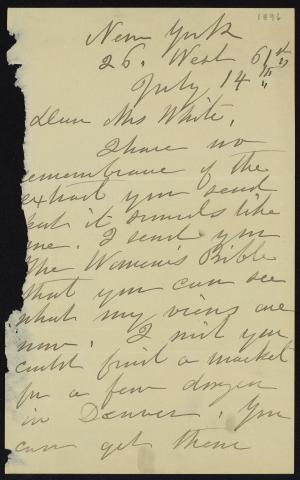 1896
New York
26. West 61st
July 14th
Dear Mrs White,
I have no
remembrance of the
extract you send
but it sounds like
me. I send you
The Woman's Bible
that you can see
what my views are
now. I wish you
could find a market
for a few dozen
in Denver. You
can get them